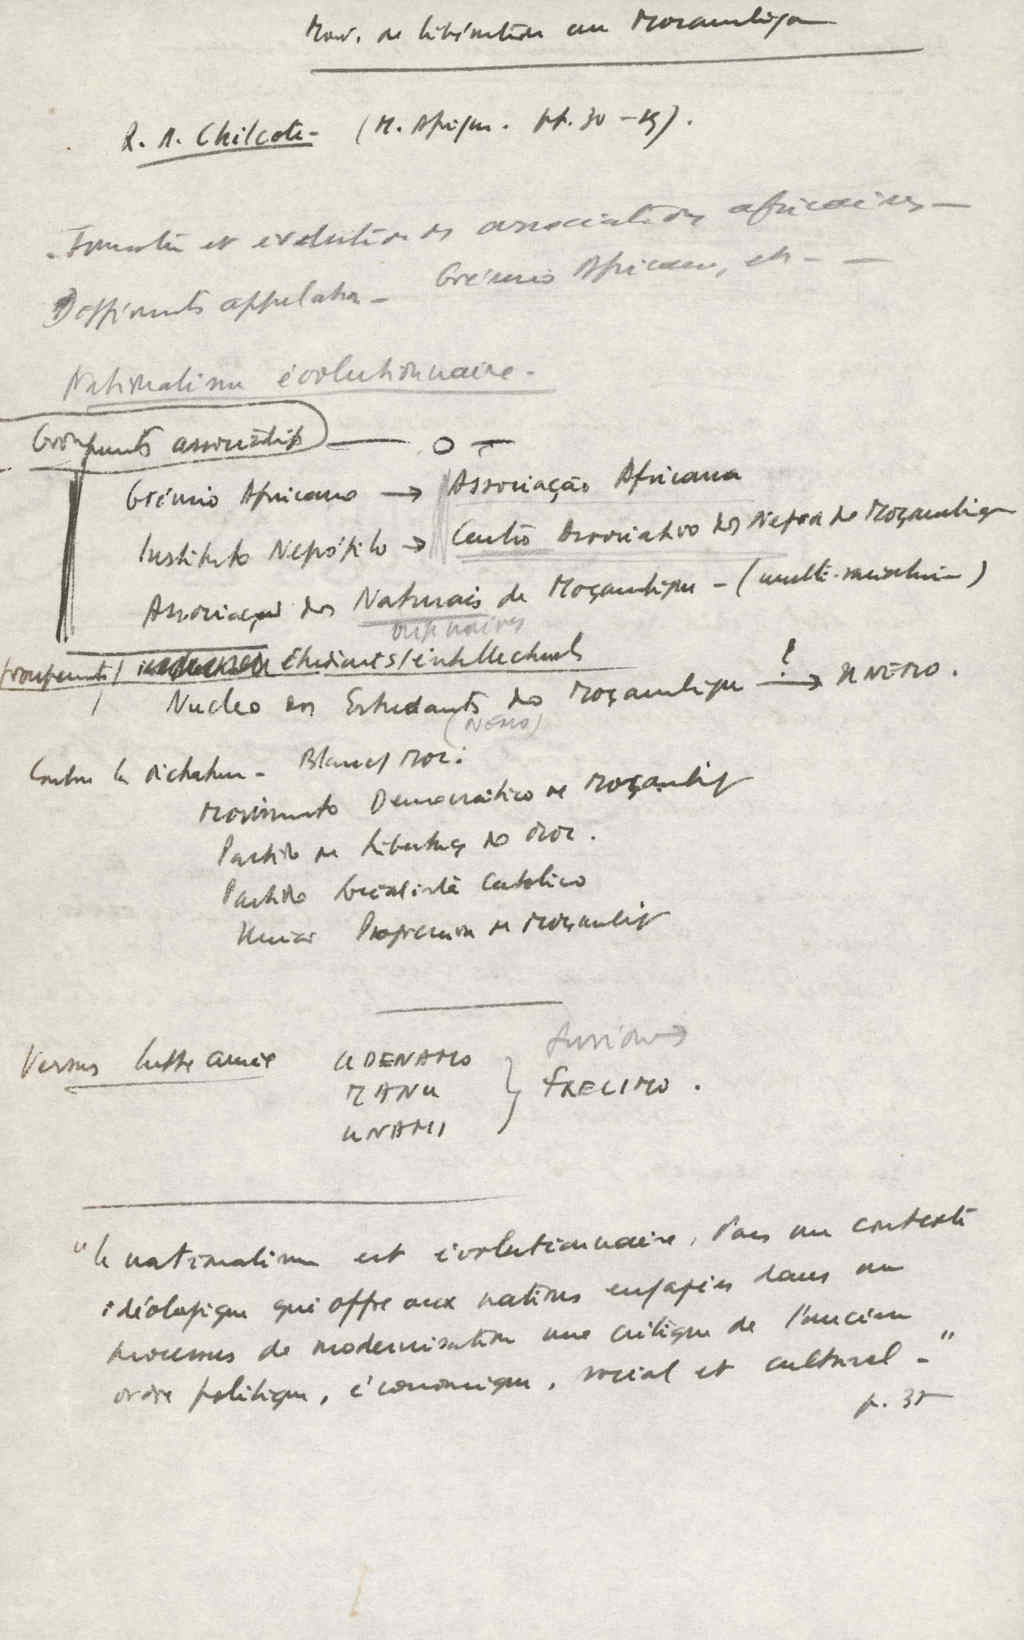 Mouv. de libération au Mozambique
R. A. Chilcote - (M. Afrique. pp. 30 -
- Formation et évolution des associations africaines -
Différents appelation - Grémio Africano, etc - -
Nationalisme évolutionnaire -
Groupements associatifs
Grémio Africano → Associação Africana
Instituto Negrófilo → Centro Associativo dos Negros de Moçambique
Associação dos Naturais de Moçambique - (multi-raciale)
originaires
Groupements / étudiants/intellectuels
Nucleo dos Estudantes de Moçambique → ? UNEMO.
(NESO)
Contre la dictature - Blancs Moz.
Movimento Democrático de Moçambique
Partido de Libertação de Moz.
Partido Socialista Católico
União Progressiva de Moçambique
Versus lutte armée UDENAMO
MANU
UNAMI
} fusion → FRELIMO.
"Le nationalisme est évolutionnaire, dans un contexte
idéologique qui offre aux nations engagées dans un
processus de modernisation une critique de l'ancien
ordre politique, économique, social et culturel -"
p. 35